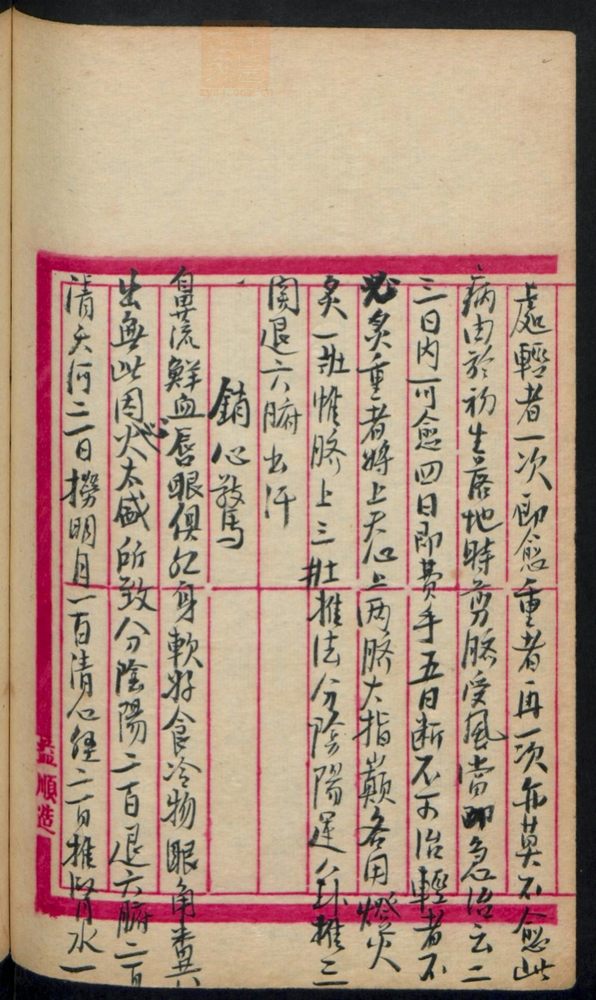 處輕者一次即愈重者再一次無莫不愈此
病由於初生落地時剪臍受風當即急治云二
三日内可愈四日即費手五日斷不可治輕者不
必炙重者將上天心上兩臍大指巔各用燈火
炙一壯惟臍上三壯推法分陰陽運八卦推三
関退六腑出汗
銷心驚
鼻流鮮血唇眼俱紅身軟好食冷物眼角糞
出無此因火太盛所致分陰陽二百退六腑二百
清天河二百撈明月一百清心經二百推腎水一
益順造